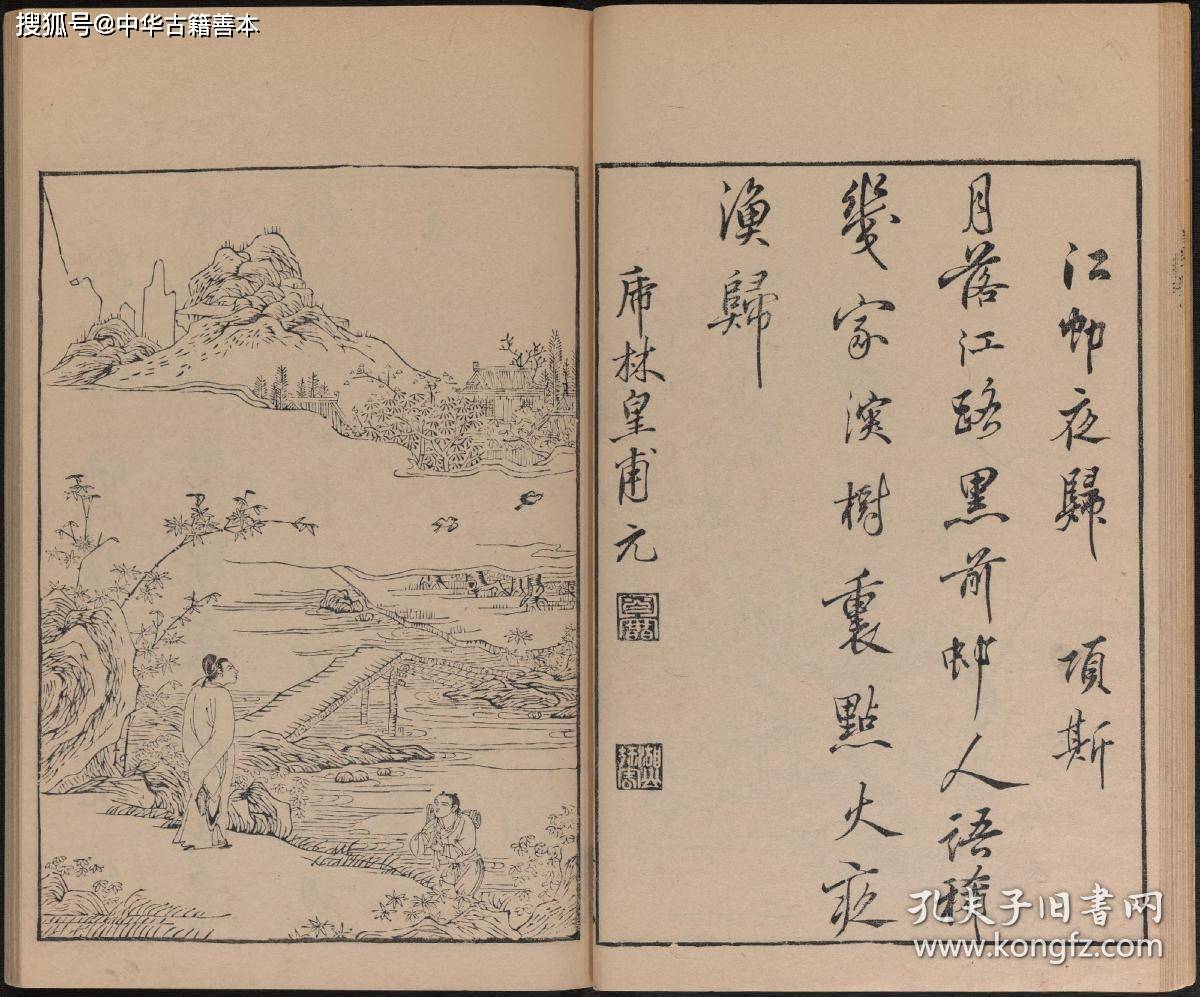 搜狐号@中华古籍善本
江邨夜歸 項斯
月落江路黑前邨人語稀
幾家深樹裏點火夜
漁歸
虎林皇甫元
孔夫子旧书网
www.kongfz.com